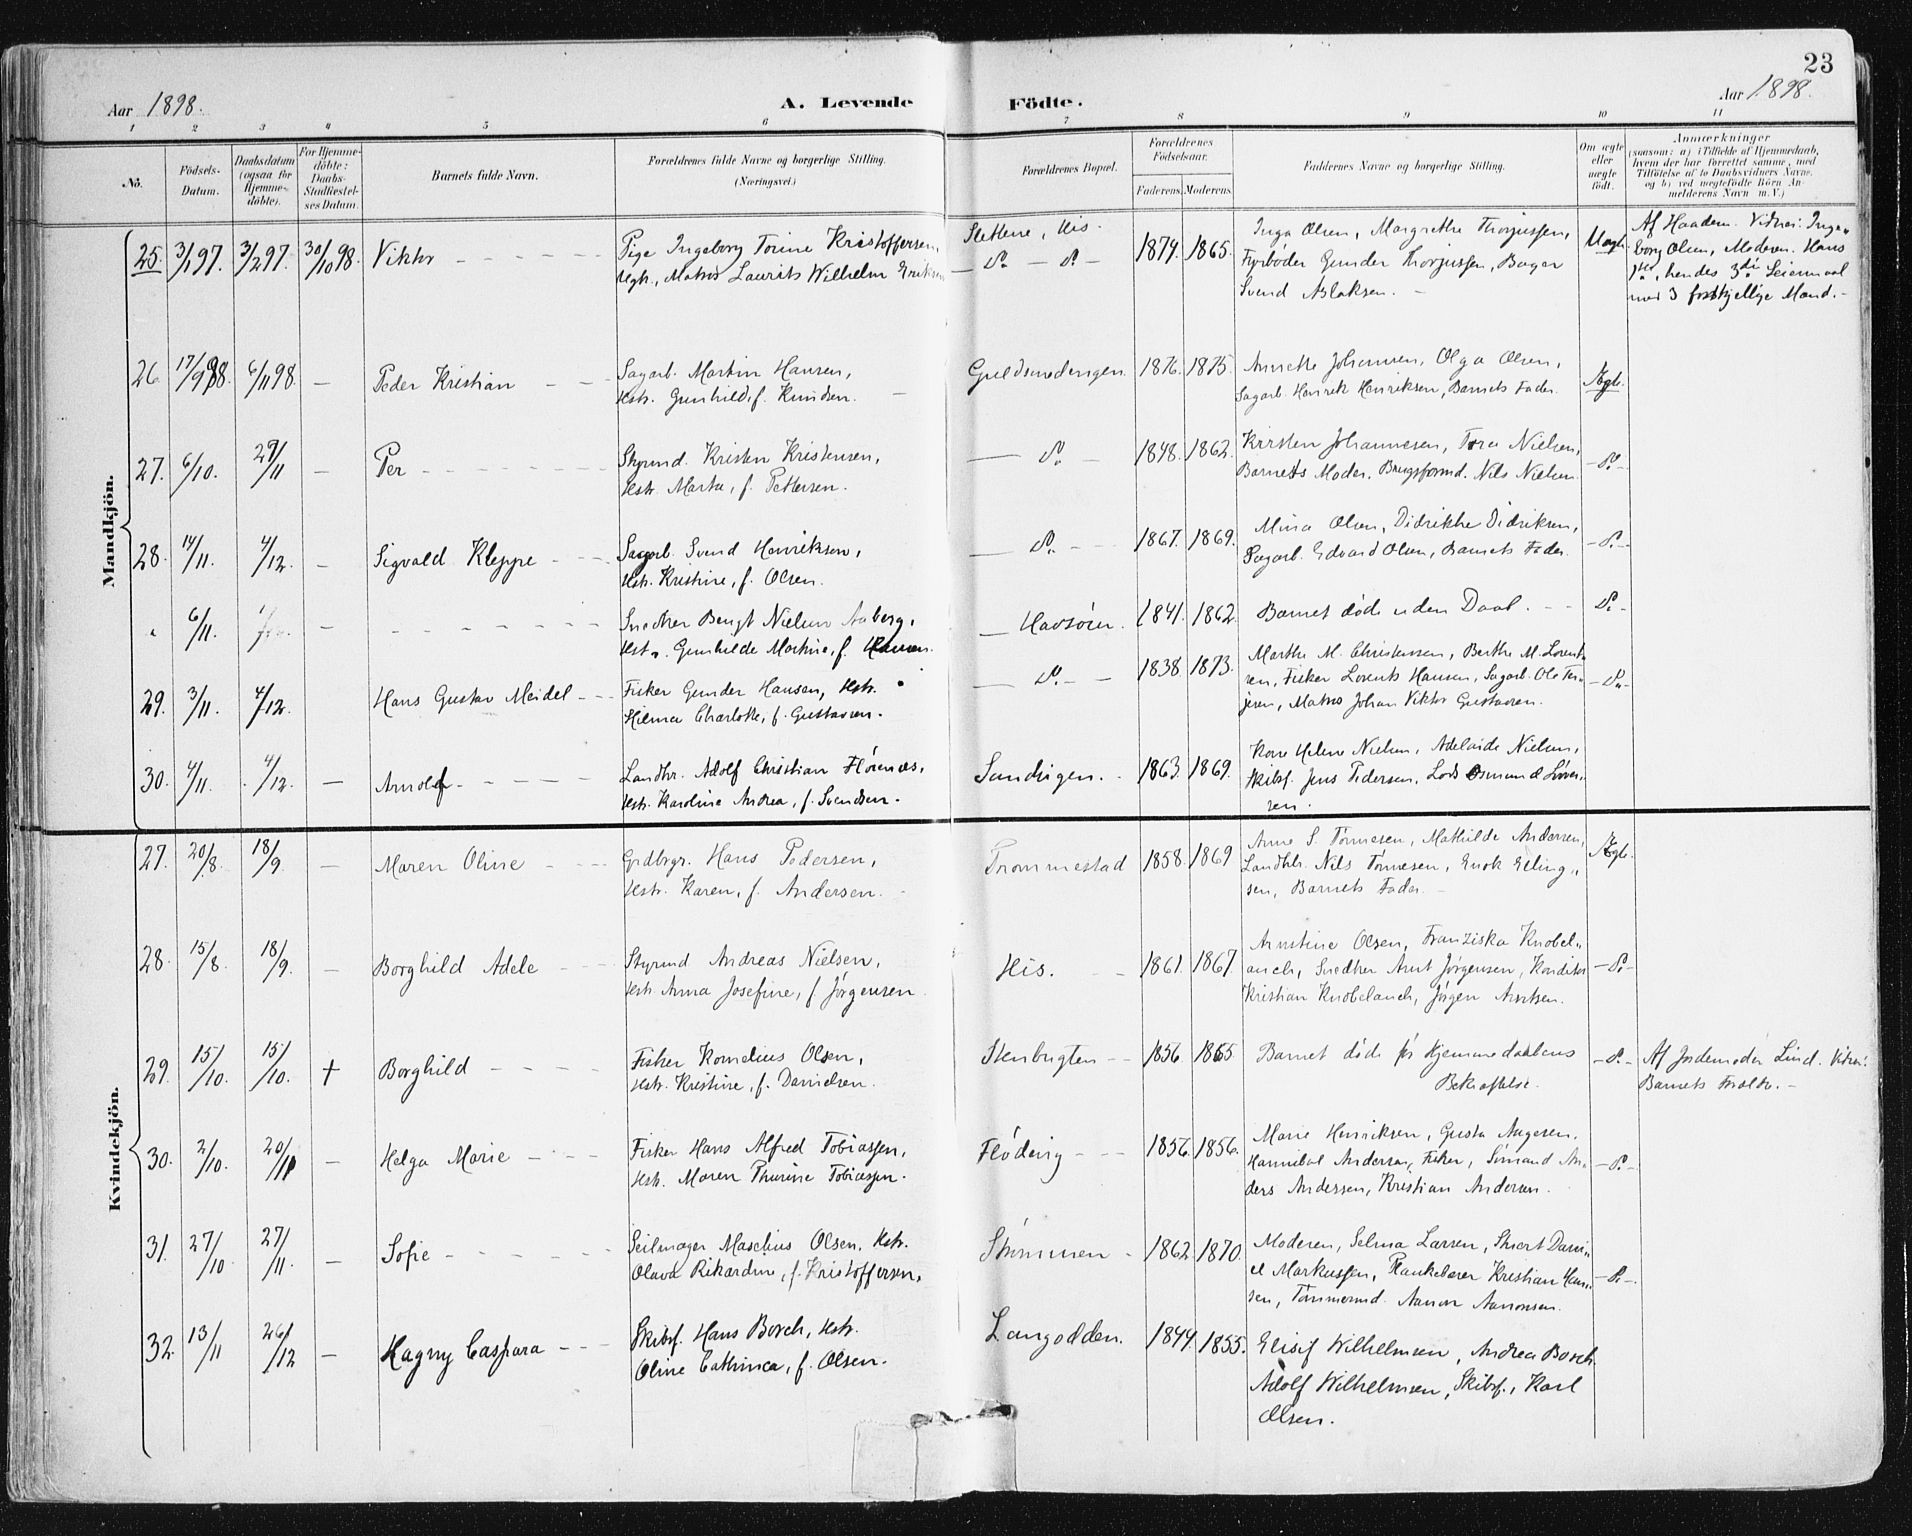 23
Aar 1898.
A. Levende Födte.
Aar 1898.
1 2 3 4 5 6 7 8 9 10 11
No.
Födsels-Datum.
Daabsdatum (ogsaa for Hjemme-döbte).
For Hjemme-döbte: Daabs-Stadfæstel-ses Datum.
Barnets fulde Navn.
Forældrenes fulde Navne og borgerlige Stilling. (Næringsvei.)
Forældrenes Bopæl.
Forældrenes Födselsaar.
Faderens. Moderens.
Faddernes Navne og borgerlige Stilling.
Om ægte eller uægte födt.
Anmærkninger
(saasom: a) i Tilfælde af Hjemmedaab,
hvem der har forrettet samme, med
Tilföielse af to Daabsvidners Navne,
og b) ved uægtefödte Börn An-
melderens Navn m. V.)
Mandkjön.
25. 3/1 97. 3/2 97. 30/10 98. Viktor
Pige Ingeborg Torine Kristoffersen,
Ugk., Matros Laurits Wilhelm Eriksen
Slettene, His.
— do — do —
1874. 1865.
Inga Olsen, Margrethe Thorjussen,
Fyrböder Gunder Thorjussen, Bager
Svend Aslaksen. —
Uægte.
Af Haadem. Vidner: Inge-
borg Olsen, Moderen. Hans
hendes 3die Leiermaal
med 3 forskjellige Mænd. —
26. 17/9 98. 6/11 98. — Peder Kristian
Sagarb. Martin Hansen,
Hstr. Gunhild, f. Knudsen. —
Guldsmedengen.
1876. 1875.
Annette Johansen, Olga Olsen,
Sagarb. Henrik Henriksen, Barnets Fader.
Ægte.
27. 6/10. 27/11 — Per
Styrmd. Kristen Kristensen,
Hstr. Marta, f. Pettersen.
— do —
1848. 1862.
Kirsten Johannesen, Tora Nielsen,
Barnets Moder, Brugsformd. Nils Nielsen.
— do —
28. 14/11. 4/12. — Sigvald Kleppe
Sagarb. Svend Henriksen,
Hstr. Kristine, f. Olsen.
— do —
1867. 1869.
Mina Olsen, Didrikke Didriksen,
Sagarb. Edvard Olsen, Barnets Fader.
— do —
" 6/11. —
Snedker Bengt Nielsen Aaberg,
Hstr. Gunhilde Martine, f. Hansen.
— Havsöien.
1841. 1862.
Barnet döde uden Daab. — —
do —
29. 3/11. 4/12. Hans Gustav Meidel
Fisker Gunder Hansen, Hstr.
Hilma Charlotte, f. Gustavsen.
— do —
1838. 1873.
Marthe M. Christensen, Berthe M. Lorent-
sen, Fisker Lorents Hansen, Sagarb. Ole Ter-
jesen, Matros Johan Viktor Gustavsen.
— do —
30. 4/11. 4/12. — Arnolf
Landhr. Adolf Christian Flörenæs,
Hstr. Karoline Andrea, f. Svendsen.
Sandvigen.
1863. 1869.
Kone Helene Nielsen, Adelaide Nielsen,
Skibsf. Jens Pedersen, Lods Osmund Sören-
sen.
Kvindekjön.
27. 20/8. 18/9. — Maren Oline
Grdbrgr. Hans Pedersen,
Hstr. Karen, f. Andersen. —
Trommestad
1858. 1869
Anne S. Tönnesen, Mathilde Andersen,
Landhlr. Nils Tönnesen, Enok Elling-
sen, Barnets Fader. —
Ægte.
28. 15/8. 18/9. — Borghild Adele
Styrmd Andreas Nielsen,
Hstr. Anna Josefine, f. Jörgensen
His.
1861. 1867.
Arnstine Olsen, Franziska Knobel-
auch, Snedker Arnt Jörgensen, Konditor
Kristian Knobelauch, Jörgen Arntsen.
— do —
29. 15/10. 15/10. + Borghild
Fisker Kornelius Olsen,
Hstr. Kristine, f. Danielsen.
Stenbugten
1856 1865
Barnet döde för Hjemmedaabens
Bekræftelse.
— do —
Af Jordemoder Lind. Vidner:
Barnets Forældre. —
30. 2/10. 20/11 — Helga Marie
Fisker Hans Alfred Tobiassen,
Hstr. Maren Thurine Tobiassen.
Flödevig
1856. 1856.
Marie Henriksen, Gusta Aagesen,
Hannibal Andersen, Fisker, Sömand An-
ders Andersen, Kristian Andersen.
— do —
31. 27/10 27/11 — Sofie
Seilmager Maselius Olsen, Hstr.
Olava Rikardine, f. Kristoffersen.
Strömmen
1862. 1870.
Moderen, Selma Larsen, Skuert Dani-
el Markussen, Plankebærer Kristian Han-
sen, Tömmermd. Aanon Aanonsen.
— do —
32. 13/11 26/12 — Hagny Caspara
Skibsf. Hans Borch, Hstr.
Oline Cathinca, f. Olsen.
Langodden.
1844. 1855.
Elisif Wilhelmsen, Andrea Borch.
Adolf Wilhelmsen, Skibsf., Karl
Olsen.